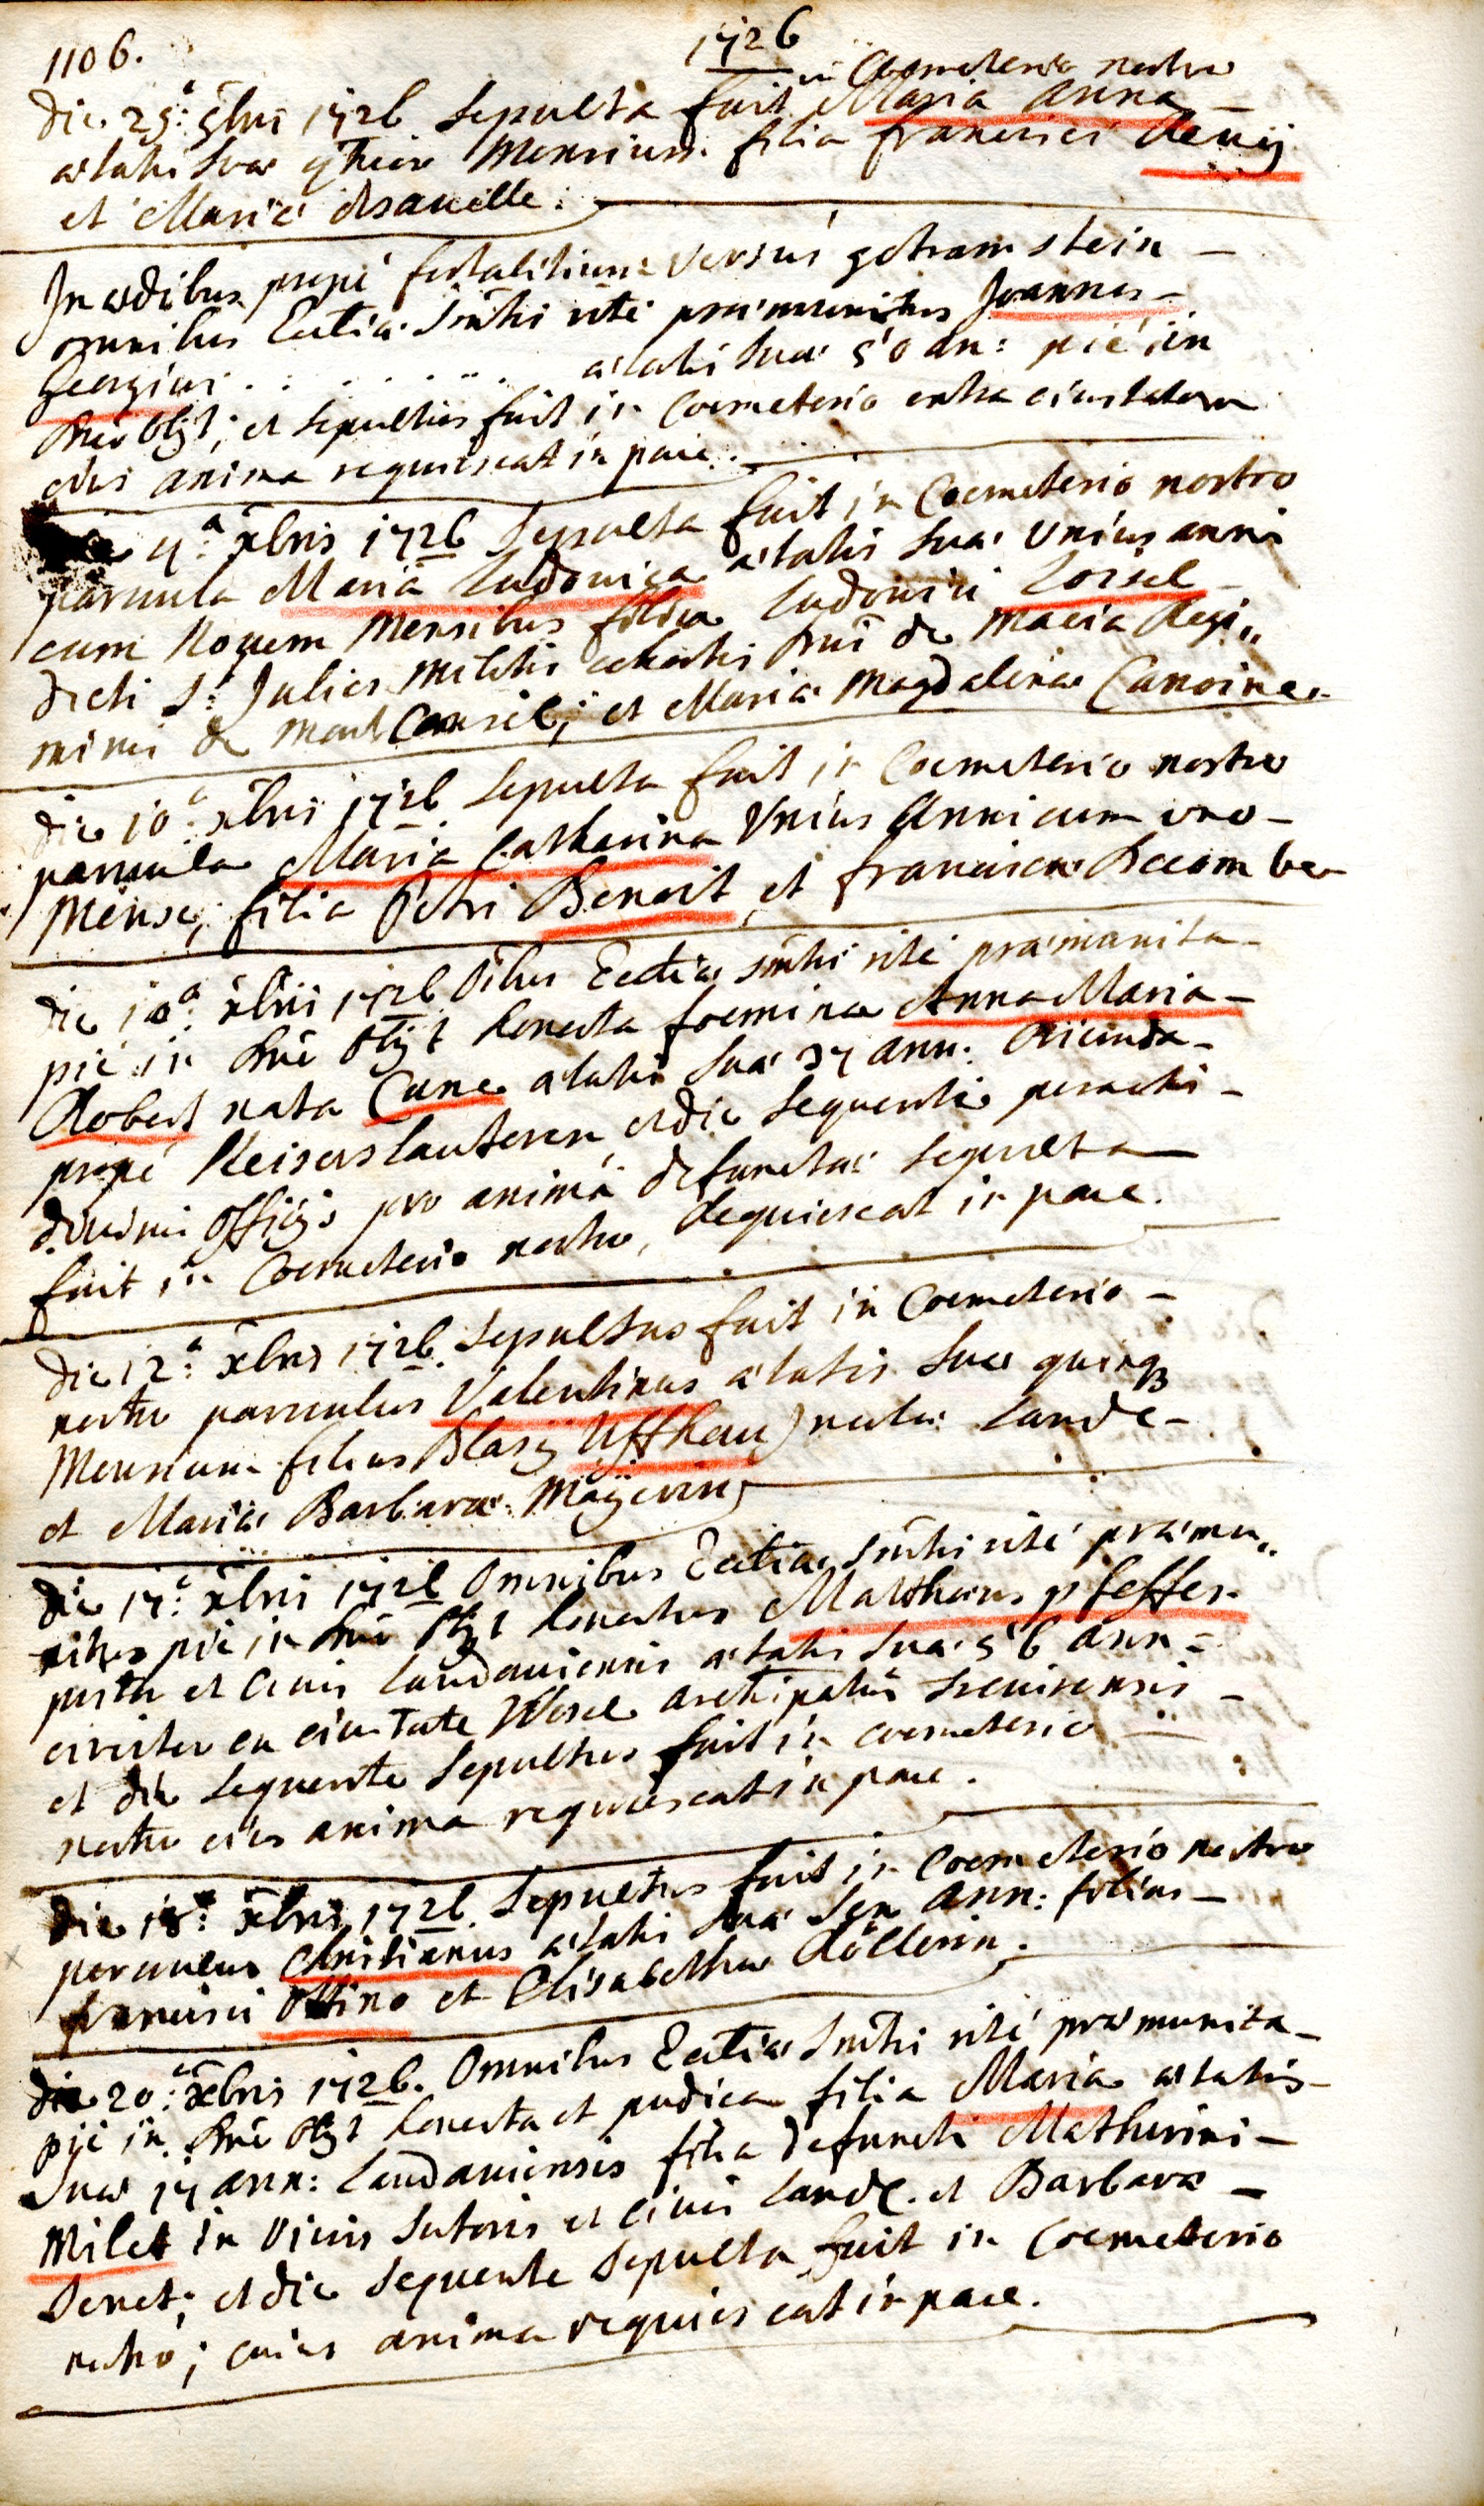 1106.
1726
in Coemeterio nostro
die 29:a 9bris 1726 Sepulta fuit Maria Anna
ætatis suæ Mensium filia francisci Remij
et Mariæ
In ædibus propè fortalitium versus gotram stein
omnibus Eccliæ Smtis ritè præmunitus Joannes
Georgius . . . . . . . ætatis suæ 50 an: piè in
Dnō obijt; et sepultus fuit in Coemeterio extra ciuitatem
cuius anima requiescat in pace.
4:a xbris 1726 Sepulta fuit in Coemeterio nostro
paruula Maria Ludouica ætatis suæ Unius anni
cum Nouem Mensibus filia Ludouici Loisel
dicti St: Julien militis cohortis Dni de Macia Regi„
minis de mont Conseil; et Mariæ Magdalenæ Canoine.
die 10:a xbris 1726. Sepulta fuit in Coemeterio nostro
paruula Maria Catharina Unius Anni cum uno
Mense, filia Petri Benoit, et franciscæ
die 10:a xbris 1726 Oibus Eccliæ smtis ritè præmunita
piè in Dnō Obijt honesta foemina Anna Maria
Robert nata Cune ætatis suæ 37 ann: Oriunda
propè Keiserslauteren et die sequenti peractis
diuinis Officijs pro anima defunctæ sepulta
fuit in Coemeterio nostro, Requiescat in pace.
die 12:a xbris 1726. Sepultus fuit in Coemeterio
nostro paruulus Valentinus ætatis suæ quinq;
Mensium filius Blasij Uffhau) nautæ Landę
et Mariæ Barbaræ Mayerin)
die 17:a xbris 1726 Omnibus Eccliæ Smtis ritè præmu„
nitus piè in Dnō Obijt honestus Matthæus pfeffer
pistor et Ciuis Landauiensis ætatis suæ 56 ann:
circiter ex ciuitate Wesel archipatus Treuirensis
et die sequente Sepultus fuit in coemeterio
nostro eius anima requiescat in pace.
die 18:a xbris 1726. Sepultus fuit in Coemeterio nostro
paruulus Christianus ætatis suæ Sex ann: filius
francisci Ottino et Elisabethæ Röllerin.
die 20:a xbris 1726. Omnibus Eccliæ Smtis ritè præmunita
pijè in Dnō Obijt honesta et pudica filia Maria ætatis
suæ 17 ann: Landauiensis filia defuncti Mathurini
Milet in Viuis Sutoris et Ciuis Landę. et Barbaræ
Senet; et die sequente Sepulta fuit in Coemeterio
nostro; cuius anima requiescat in pace.